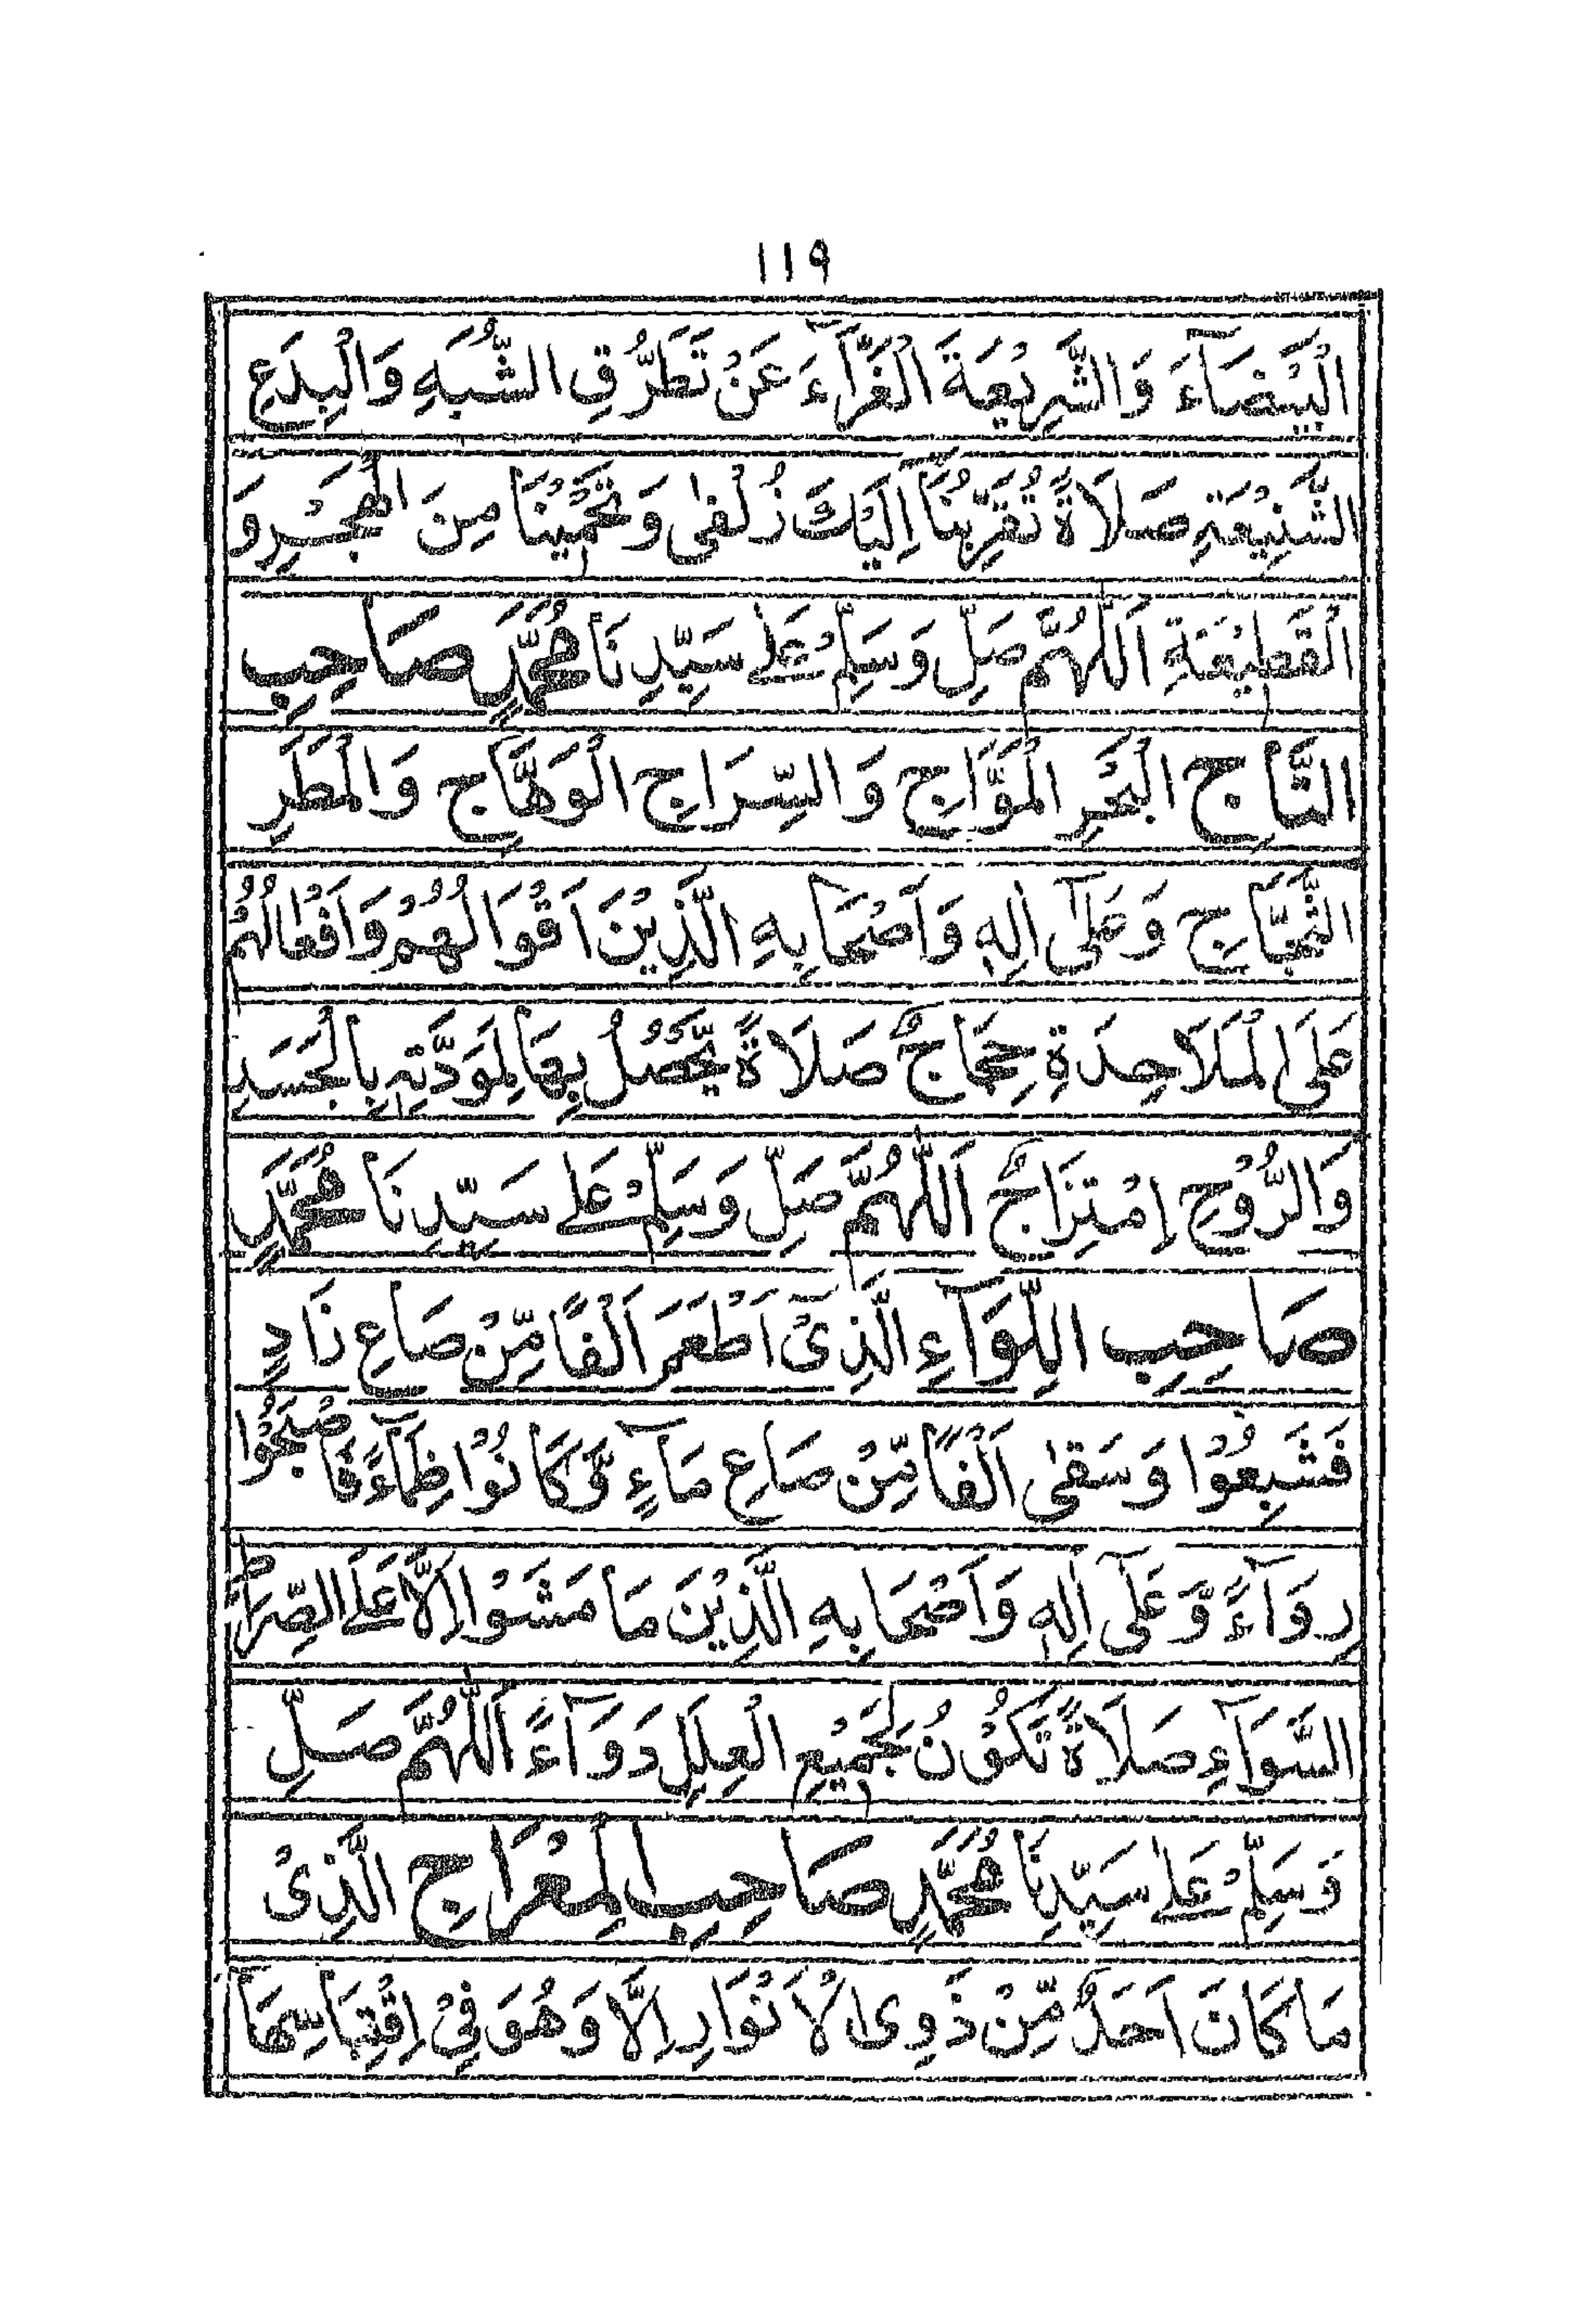 ١١٩
الْبَيْضَآءَ وَالشَّرِيْعَةَ الْغَرَّآءَ عَنْ تَطَرُّقِ الشُّبَهِ وَالْبِدَعِ
الشَّنِيْعَةِ صَلَاةً تُقَرِّبُنَآ اِلَيْكَ زُلْفٰى وَتَحْمِيْنَا مِنَ الْهَجْرِ وَ
الْقَطِيْعَةِ اَللّٰهُمَّ صَلِّ وَسَلِّمْ عَلٰے سَيِّدِنَا مُحَمَّدٍ صَاحِبِ
التَّاجِ الْبَحْرِ الْمَوَّاجِ وَالسِّرَاجِ الْوَهَّاجِ وَالْمَطَرِ
الثَّجَّاجِ وَعَلٰٓى اٰلِهٖ وَاَصْحَابِهِ الَّذِيْنَ اَقْوَالُهُمْ وَاَفْعَالُهُمْ
عَلَى الْمَلَاحِدَةِ حِجَاجٌ صَلَاةً يَّحْصُلُ بِهَا لِمَوَدَّتِهٖ بِالْجَسَدِ
وَالرُّوْحِ اِمْتِزَاجٌ اَللّٰهُمَّ صَلِّ وَسَلِّمْ عَلٰے سَيِّدِنَا مُحَمَّدٍ
صَاحِبِ اللِّوَآءِ الَّذِىْٓ اَطْعَمَ اَلْفًا مِّنْ صَاعِ زَادٍ
فَشَبِعُوْا وَسَقٰى اَلْفًا مِّنْ صَاعِ مَآءٍ وَّكَانُوْا ظِمَآءً فَاَصْبَحُوْا
رِوَآءً وَّعَلٰٓى اٰلِهٖ وَاَصْحَابِهِ الَّذِيْنَ مَا مَشَوْا اِلَّا عَلَے الصِّرَاطِ
السَّوَآءِ صَلَاةً تَكُوْنُ لِجَمِيْعِ الْعِلَلِ دَوَآءً اَللّٰهُمَّ صَلِّ
وَسَلِّمْ عَلٰے سَيِّدِنَا مُحَمَّدٍ صَاحِبِ الْمِعْرَاجِ الَّذِىْ
مَا كَانَ اَحَدٌ مِّنْ ذَوِى الْاَنْوَارِ اِلَّا وَهُوَ فِىْ اِقْتِبَاسِهَا